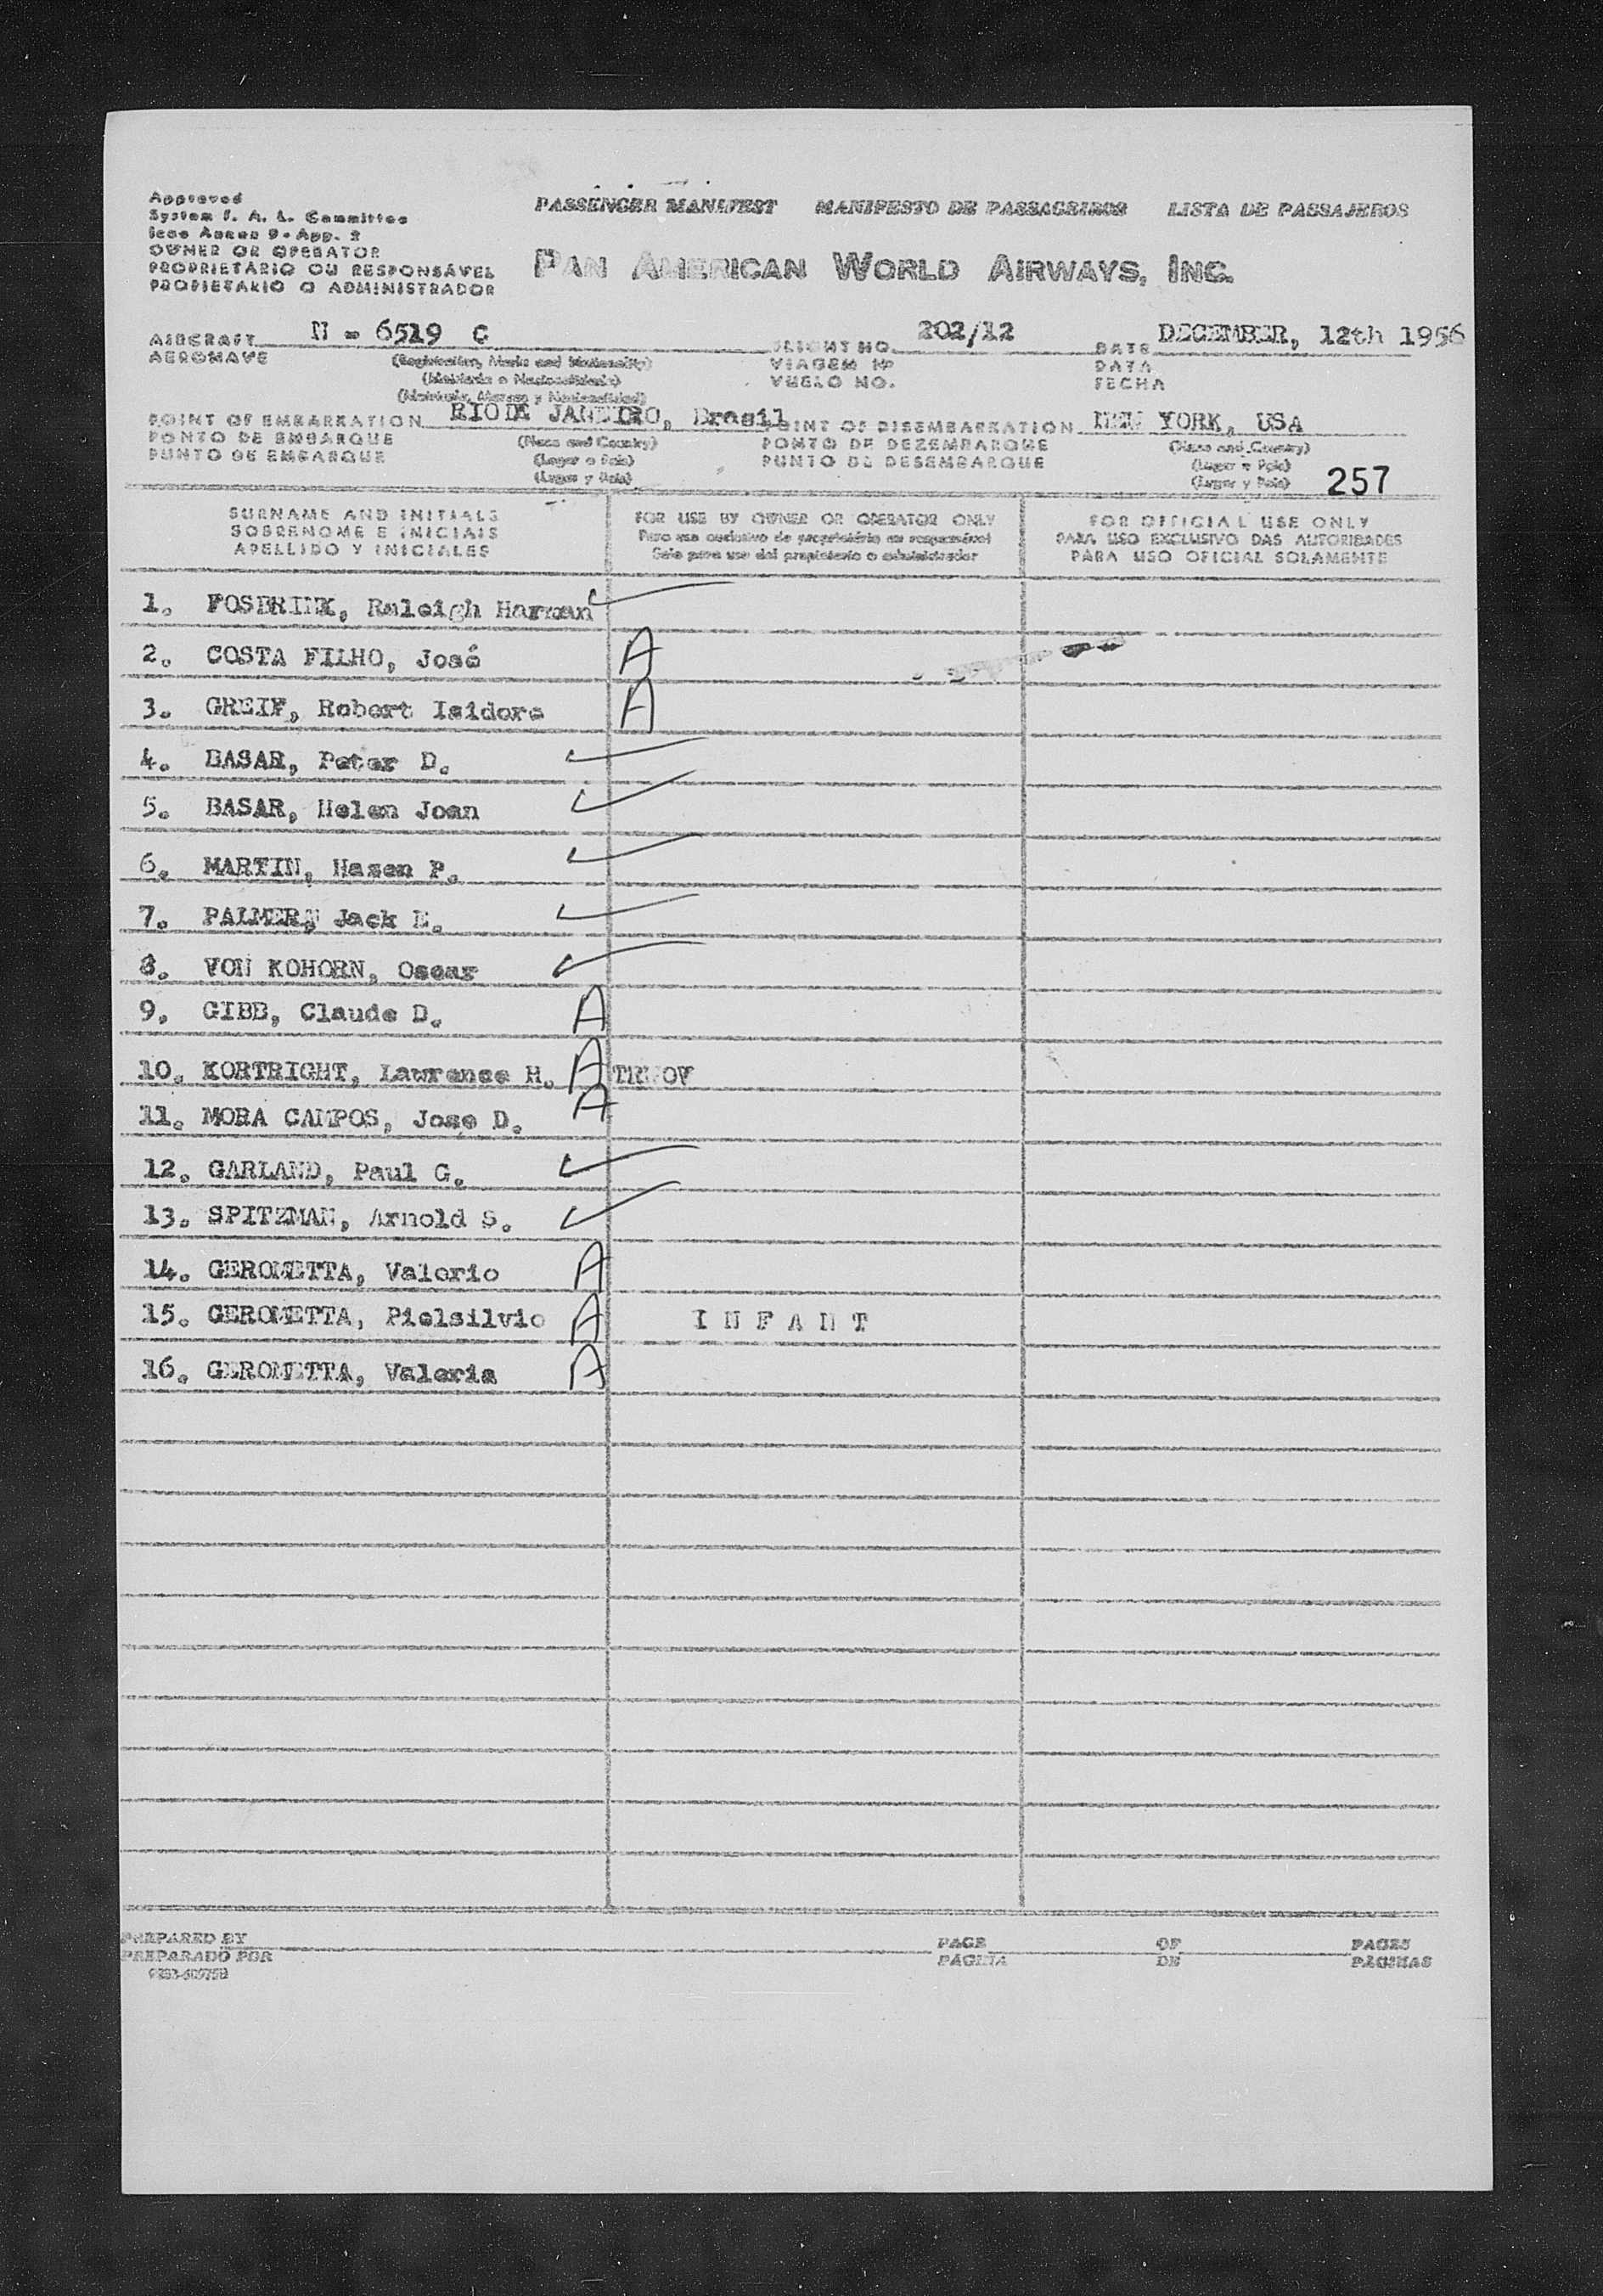 Approved
System F. A. L. Committee
Icao Annex 9 - App. 2
OWNER OR OPERATOR
PROPRIETÁRIO OU RESPONSÁVEL
PROPIETARIO O ADMINISTRADOR
PASSENGER MANIFEST MANIFESTO DE PASSAGEIROS LISTA DE PASAJEROS
PAN AMERICAN WORLD AIRWAYS, INC.
AIRCRAFT N - 6519 C FLIGHT NO. 202/12 DATE DECEMBER, 12th 1956
AERONAVE (Registration, Marks and Nationality) VIAGEM Nº DATA
(Matrícula e Nacionalidade) VUELO NO. FECHA
(Matrícula, Marcas y Nacionalidad)
POINT OF EMBARKATION RIO DE JANEIRO, Brasil POINT OF DISEMBARKATION NEW YORK, USA
PONTO DE EMBARQUE (Place and Country) PONTO DE DEZEMBARQUE (Place and Country)
PUNTO DE EMBARQUE (Lugar e País) PUNTO DE DESEMBARQUE (Lugar e País)
(Lugar y País) (Lugar y País) 257
SURNAME AND INITIALS FOR USE BY OWNER OR OPERATOR ONLY FOR OFFICIAL USE ONLY
SOBRENOME E INICIAIS Para uso exclusivo do proprietário ou responsável PARA USO EXCLUSIVO DAS AUTORIDADES
APELLIDO Y INICIALES Solo para uso del propietario o administrador PARA USO OFICIAL SOLAMENTE
1. FOSBRINK, Raleigh Harman ✓
2. COSTA FILHO, José A
3. GREIF, Robert Isidore A
4. BASAR, Peter D. ✓
5. BASAR, Helen Joan ✓
6. MARTIN, Hasen P. ✓
7. PALMER, Jack E. ✓
8. VON KOHORN, Oscar ✓
9. GIBB, Claude D. A
10. KORTRIGHT, Lawrence H. A
11. MORA CAMPOS, Jose D. A
12. GARLAND, Paul G. ✓
13. SPITZMAN, Arnold S. ✓
14. GEROMETTA, Valerio A
15. GEROMETTA, Pielsilvio A INFANT
16. GEROMETTA, Valeria A
PREPARED BY PAGE OF PAGES
PREPARADO POR PÁGINA DE PÁGINAS